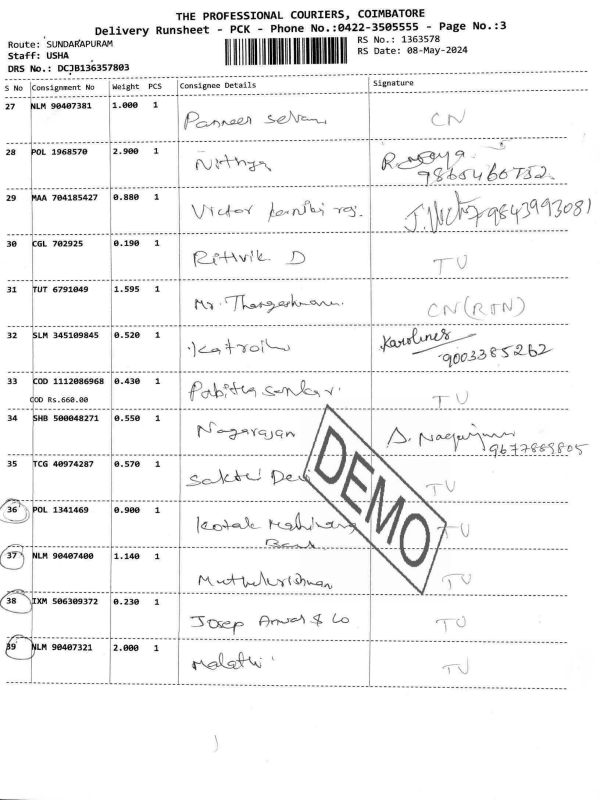 THE PROFESSIONAL COURIERS, COIMBATORE
Delivery Runsheet - PCK - Phone No.:0422-3505555 - Page No.:3
Route: SUNDARAPURAM
RS No.: 1363578
Staff: USHA
RS Date: 08-May-2024
DRS No.: DCJB136357803
S No Consignment No Weight PCS Consignee Details Signature
27 NLM 90407381 1.000 1 Panneer Selvam CN
28 POL 1968570 2.900 1 Nithya
9865460752
29 MAA 704185427 0.880 1 Victor J. Victor 9843993081
30 CGL 702925 0.190 1 Rithvik D TU
31 TUT 6791049 1.595 1 Mr. CN (RTN)
32 SLM 345109845 0.520 1 Karolines
9003385262
33 COD 1112086968 0.430 1 Pabitra sankar. TU
COD Rs.660.00
34 SHB 500048271 0.550 1 Nagarajan
9677889805
35 TCG 40974287 0.570 1 Sakthi Devi TU
36 POL 1341469 0.900 1 Kotak Mahindra TU
Bank
37 NLM 90407400 1.140 1 Muthukrishnan TU
38 IXM 506309372 0.230 1 Josep & Co TU
39 NLM 90407321 2.000 1 Malathi TU
DEMO